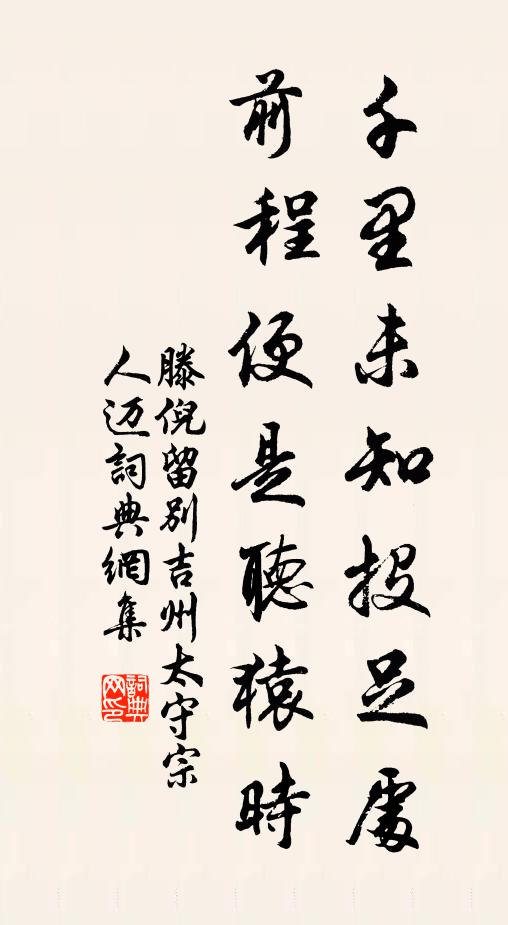 千里未知投足處
前程便是聽猿時
滕倪留別吉州太守宗
人迈詞典網集
詞典网印